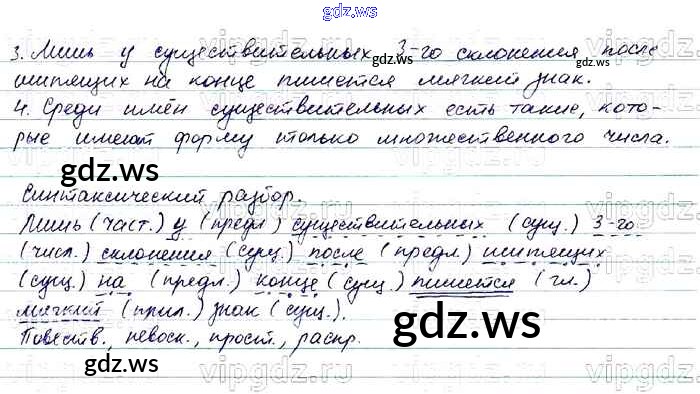 gdz.ws
3. Лишь у существительных 3-го склонения после
шипящих на конце пишется мягкий знак.
4. Среди имён существительных есть такие, кото-
рые имеют форму только множественного числа.
gdz.ws
gdz.ws
Синтаксический разбор.
Лишь (част.) у (предл.) существительных (сущ.) 3-го
(числ.) склонения (сущ.) после (предл.) шипящих
(сущ.) на (предл.) конце (сущ.) пишется (гл.)
мягкий (прил.) знак (сущ.).
Повеств., невоск., прост., распр.
gdz.ws
gdz.ws